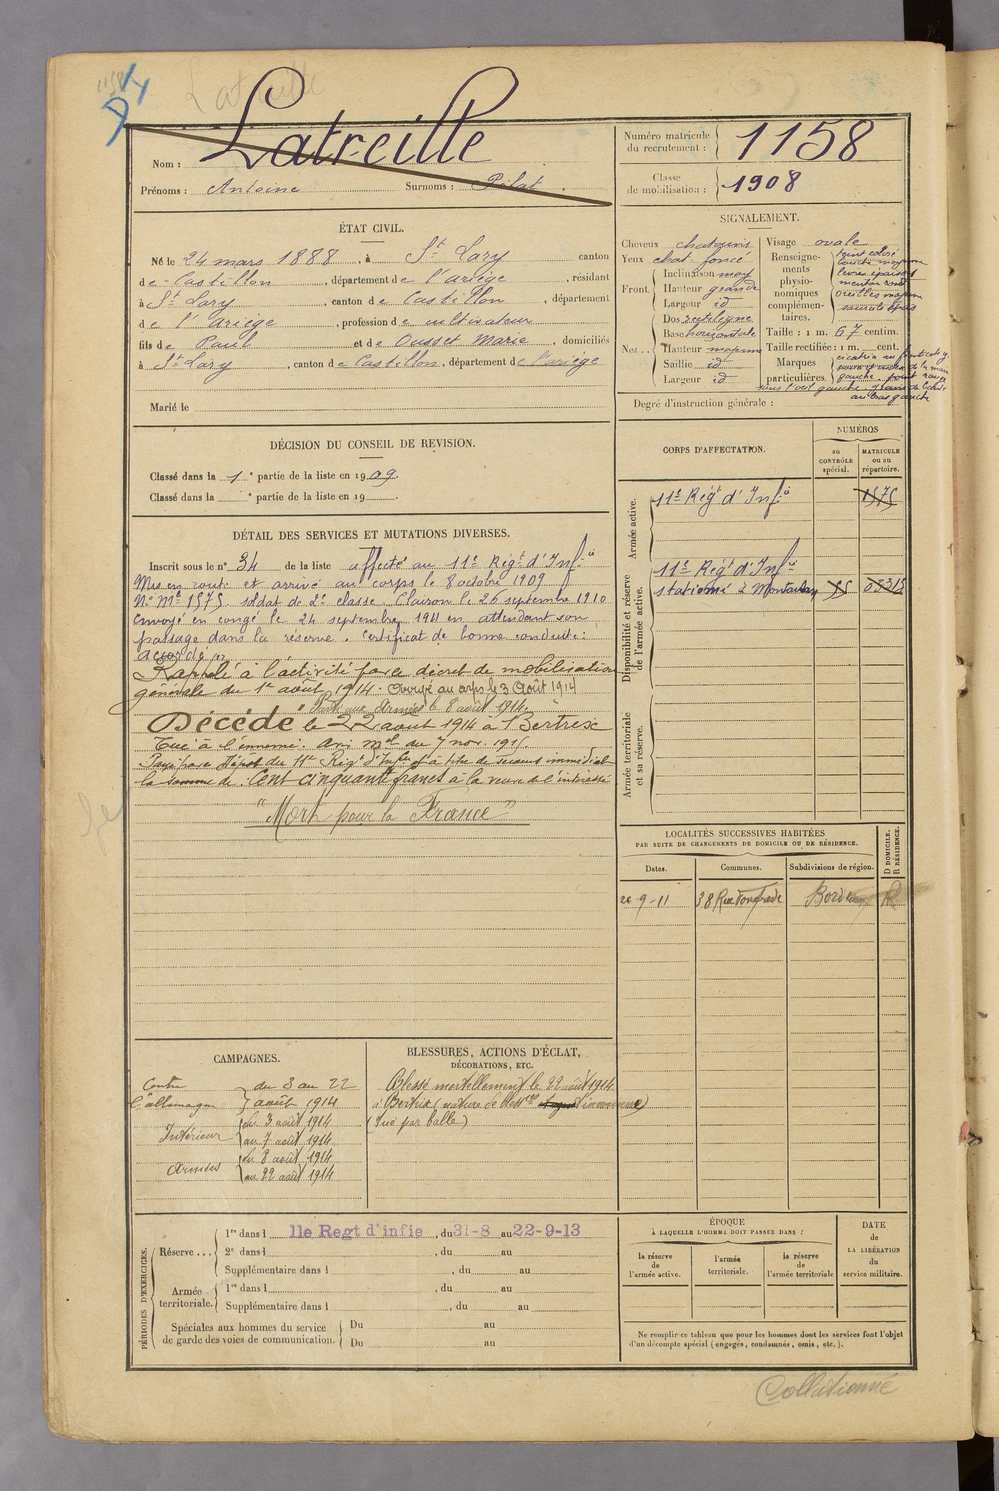 1158
Latreille
Nom : Latreille
Prénoms : Antoine Surnoms : Pilat
Numéro matricule du recrutement : 1158
Classe de mobilisation : 1908
ÉTAT CIVIL.
Né le 24 mars 1888, à St Lary canton
de Castillon, département de l'ariège, résidant
à St Lary, canton de Castillon, département
de l'Ariège, profession de cultivateur
fils de Paul et de Ousset Marie, domiciliés
à St Lary, canton de Castillon, département de l'ariège
Marié le
SIGNALEMENT.
Cheveux chatains
Yeux chat. foncé
Front. Inclinaison moy
Hauteur grande
Largeur id
Nez.. Dos rectiligne
Base horizontale
Hauteur moyenne
Saillie id
Largeur id
Visage ovale
Renseignements physionomiques complémentaires. teint coloré
bouche moyenne
lèvres épaisses
menton rond
oreilles moyen
sourcils épais
Taille : 1 m. 67 centim.
Taille rectifiée : 1 m. cent.
Marques particulières. cicatrice au front côté g.
de la main
gauche. point rouge
sous l'œil gauche. grain de beauté
au bras gauche
Degré d'instruction générale :
DÉCISION DU CONSEIL DE REVISION.
Classé dans la 1e partie de la liste en 1909.
Classé dans la e partie de la liste en 19
DÉTAIL DES SERVICES ET MUTATIONS DIVERSES.
Inscrit sous le n° 34 de la liste affecté au 11e Régt d'Infie
Mis en route et arrivé au corps le 8 octobre 1909
No Mle 1575. soldat de 2e classe. Clairon le 26 septembre 1910
Envoyé en congé le 24 septembre 1911 en attendant son
passage dans la réserve. Certificat de bonne conduite :
accordé
Rappelé à l'activité par décret de mobilisation
générale du 1er août 1914. arrivé au corps le 3 Août 1914
Parti aux armées le 8 août 1914.
Décédé le 22 août 1914 à Bertrix
Tué à l'ennemi. Avis Mel du 7 nov. 1915.
Payé par le Dépôt du 11e Régt d'Infie à titre de secours immédiat
la somme de : Cent cinquante francs à la veuve de l'intéressé
"Mort pour la France"
CORPS D'AFFECTATION.
NUMÉROS
au CONTRÔLE spécial.
MATRICULE ou au répertoire.
Armée active.
11e Régt d'Infie 1575
Disponibilité et réserve de l'armée active.
11e Régt d'Infie
stationné à Montauban
Armée territoriale et sa réserve.
LOCALITÉS SUCCESSIVES HABITÉES
PAR SUITE DE CHANGEMENTS DE DOMICILE OU DE RÉSIDENCE.
Dates. Communes. Subdivisions de région. D DOMICILE. R RÉSIDENCE.
26-9-11 38 Rue Fonfrède Bordeaux R
CAMPAGNES.
Contre l'allemagne du 3 au 22 août 1914
Intérieur du 3 août 1914
au 7 août 1914
Armées du 8 août 1914
au 22 août 1914
BLESSURES, ACTIONS D'ÉCLAT,
DÉCORATIONS, ETC.
Blessé mortellement le 22 août 1914
à Bertrix (nature de blessure inconnue)
(Tué par balle)
PÉRIODES D'EXERCICES.
Réserve... 1re dans l 11e Regt d'infie, du 31-8 au 22-9-13
2e dans l , du au
Supplémentaire dans l , du au
Armée territoriale. 1re dans l , du au
Supplémentaire dans l , du au
Spéciales aux hommes du service de garde des voies de communication. Du au
Du au
ÉPOQUE
À LAQUELLE L'HOMME DOIT PASSER DANS :
la réserve de l'armée active.
l'armée territoriale.
la réserve de l'armée territoriale
DATE
de
LA LIBÉRATION
du
service militaire.
Ne remplir ce tableau que pour les hommes dont les services font l'objet
d'un décompte spécial (engagés, condamnés, omis, etc.).
Collationné